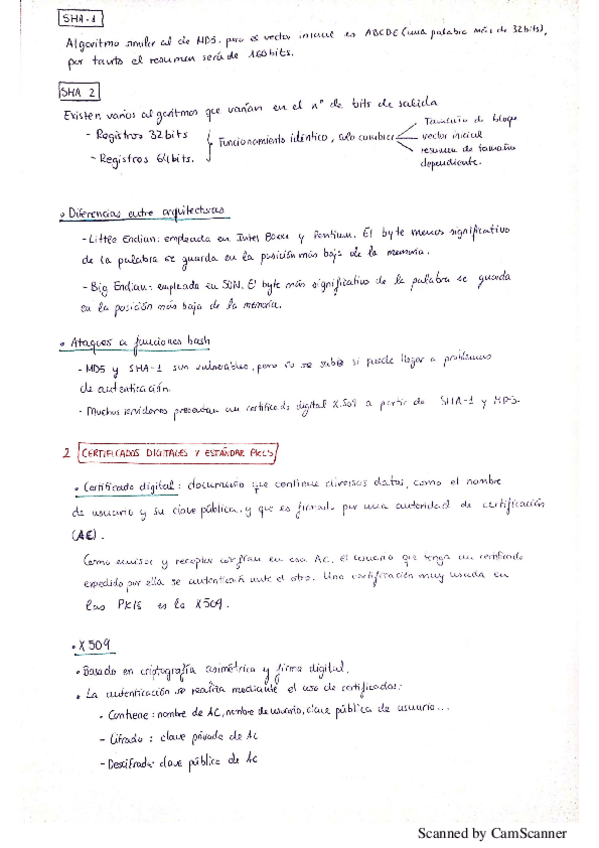 SHA-1
Algoritmo similar al de MD5. pero el vector inicial es ABCDE (una palabra más de 32bits),
por tanto el resumen será de 160bits.
SHA 2
Existen varios algoritmos que varían en el nº de bits de salida
- Registros 32bits
- Registros 64bits.
Funcionamiento idéntico, solo cambia
Tamaño de bloque
vector inicial
resumen de tamaño
dependiente.
• Diferencias entre arquitecturas
- Little Endian: empleada en Intel y Pentium. El byte menos significativo
de la palabra se guarda en la posición más baja de la memoria.
- Big Endian: empleada en SUN. El byte más significativo de la palabra se guarda
en la posición más baja de la memoria.
• Ataques a funciones hash
- MD5 y SHA-1 son vulnerables, pero no se sabe si puede llegar a problemas
de autenticación.
- Muchos servidores presentan un certificado digital X.509 a partir de SHA-1 y MD5.
2 CERTIFICADOS DIGITALES Y ESTÁNDAR PKCS
• Certificado digital: documento que contiene diversos datos, como el nombre
de usuario y su clave pública, y que es firmado por una autoridad de certificación
(AC).
Como emisor y receptor confían en esa AC, el usuario que tenga un certificado
expedido por ella se autenticará ante el otro. Una certificación muy usada en
las PKIS es la X509.
• X509
• Basado en criptografía asimétrica y firma digital.
• La autenticación se realiza mediante el uso de certificados:
- Contiene: nombre de AC, nombre de usuario, clave pública de usuario...
- Cifrado: clave privada de AC
- Descifrado: clave pública de AC
Scanned by CamScanner